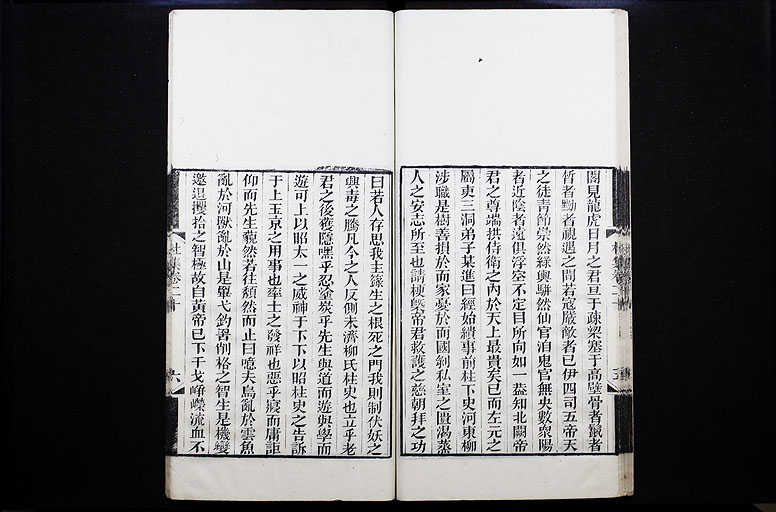 閣見龍虎日月之君亘于疎梁塞于高壁骨者鬣者
晳者黝者視遇之間若寇嚴敵者已伊四司五帝天
之徒青節崇然綠輿騈然仙官洎鬼官無央數眾陽
者近陰者遠俱浮空不定目所向如一葢知北闕帝
君之尊端拱侍衛之內於天上最貴矣已而左元之
屬吏三洞弟子某進曰經始績事前柱下史河東柳
涉職是樹善損於而家憂於而國剝私室之匱渴蒸
人之安志所至也請梗槩帝君救護之慈朝拜之功
曰若人存思我主籙生之根死之門我則制伏妖之
興毒之騰凡今之人反側未濟柳氏柱史也立乎老
君之後獲隱嘿乎忍塗炭乎先生與道而遊與學而
遊可上以昭太一之威神于下下以昭柱史之告訴
于上玉京之用事也率土之發祥也惡乎寢而庸詎
仰而先生藐然若往頹然而止曰噫夫鳥亂於雲魚
亂於河獸亂於山是畢弋釣罟削格之智生是機變
邀退攫拾之智極故自黃帝已下干戈崢嶸流血不
杜集卷二十
六